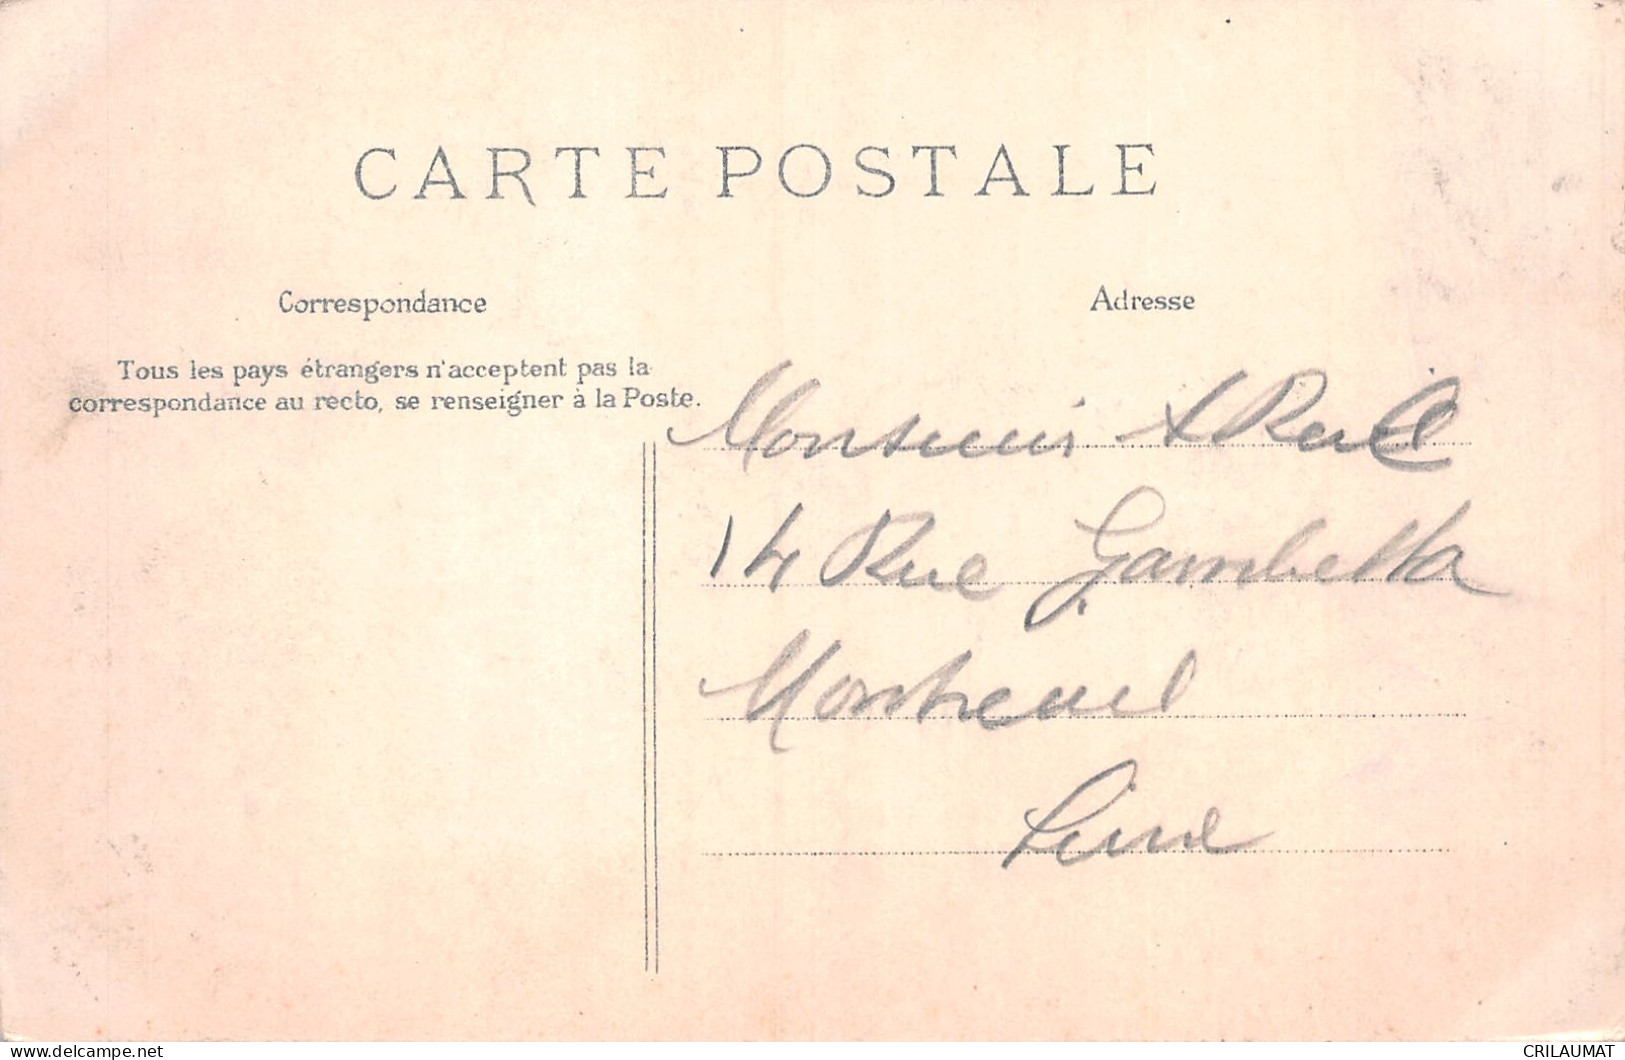 CARTE POSTALE
Correspondance
Adresse
Tous les pays étrangers n'acceptent pas la
correspondance au recto, se renseigner à la Poste.
Monsieur
14 Rue Gambetta
Montreuil
Seine
delcampe.net
CRILAUMAT